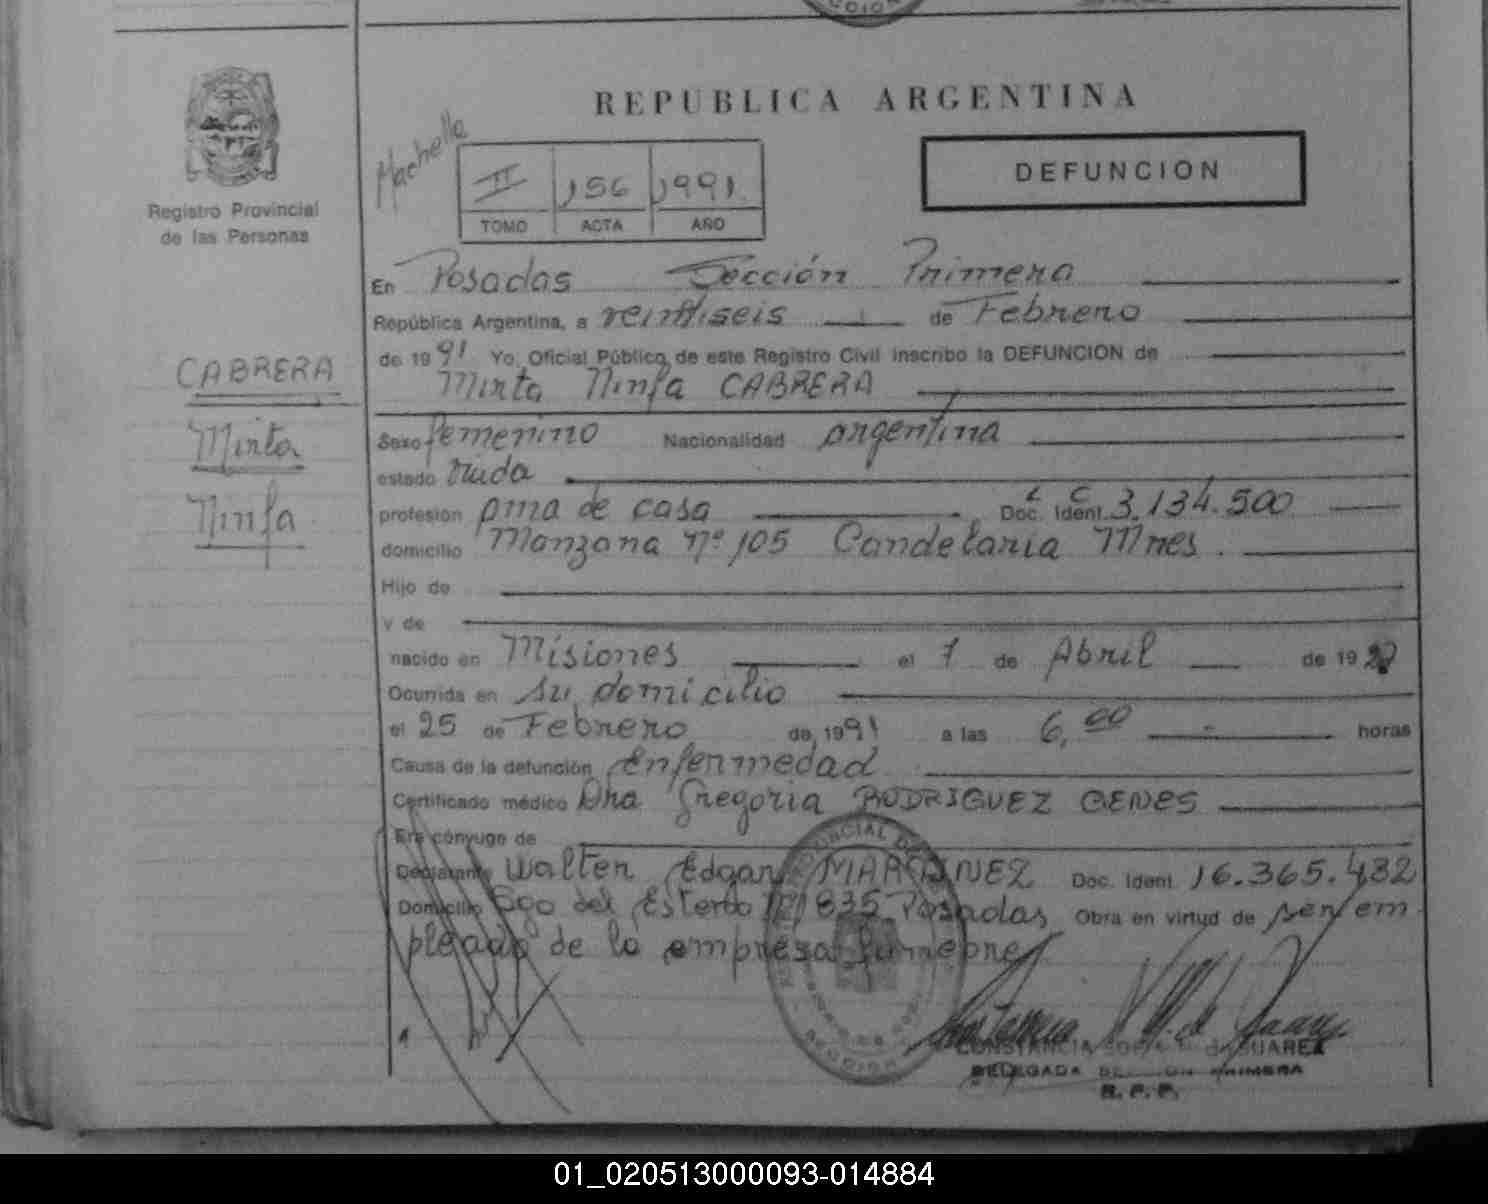 REPUBLICA ARGENTINA
Registro Provincial
de las Personas
Machella
II 156 1991.
TOMO ACTA AÑO
DEFUNCION
En Posadas Sección Primera
República Argentina, a veintiseis de Febrero
de 1991 Yo, Oficial Público de este Registro Civil inscribo la DEFUNCION de
Mirta Ninfa CABRERA
CABRERA
Mirta
Ninfa
Sexo femenino Nacionalidad argentina
estado viuda
profesión ama de casa Doc. Ident. L C 3.134.500
domicilio Manzana Nº 105 Candelaria Mnes.
Hijo de
y de
nacido en Misiones el 7 de Abril de 19
Ocurrida en su domicilio
el 25 de Febrero de 1991 a las 6,00 horas
Causa de la defunción Enfermedad
Certificado médico Dra Gregoria RODRIGUEZ GENES
Era cónyuge de
Declarante Walter Edgar MARTINEZ Doc. Ident. 16.365.432
Domicilio Sgo del Estero 835 Posadas Obra en virtud de ser em
pleado de la empresa funebre
CONSTANCIA de SUAREZ
DELEGADA PRIMERA
R. P. P.
01_020513000093-014884